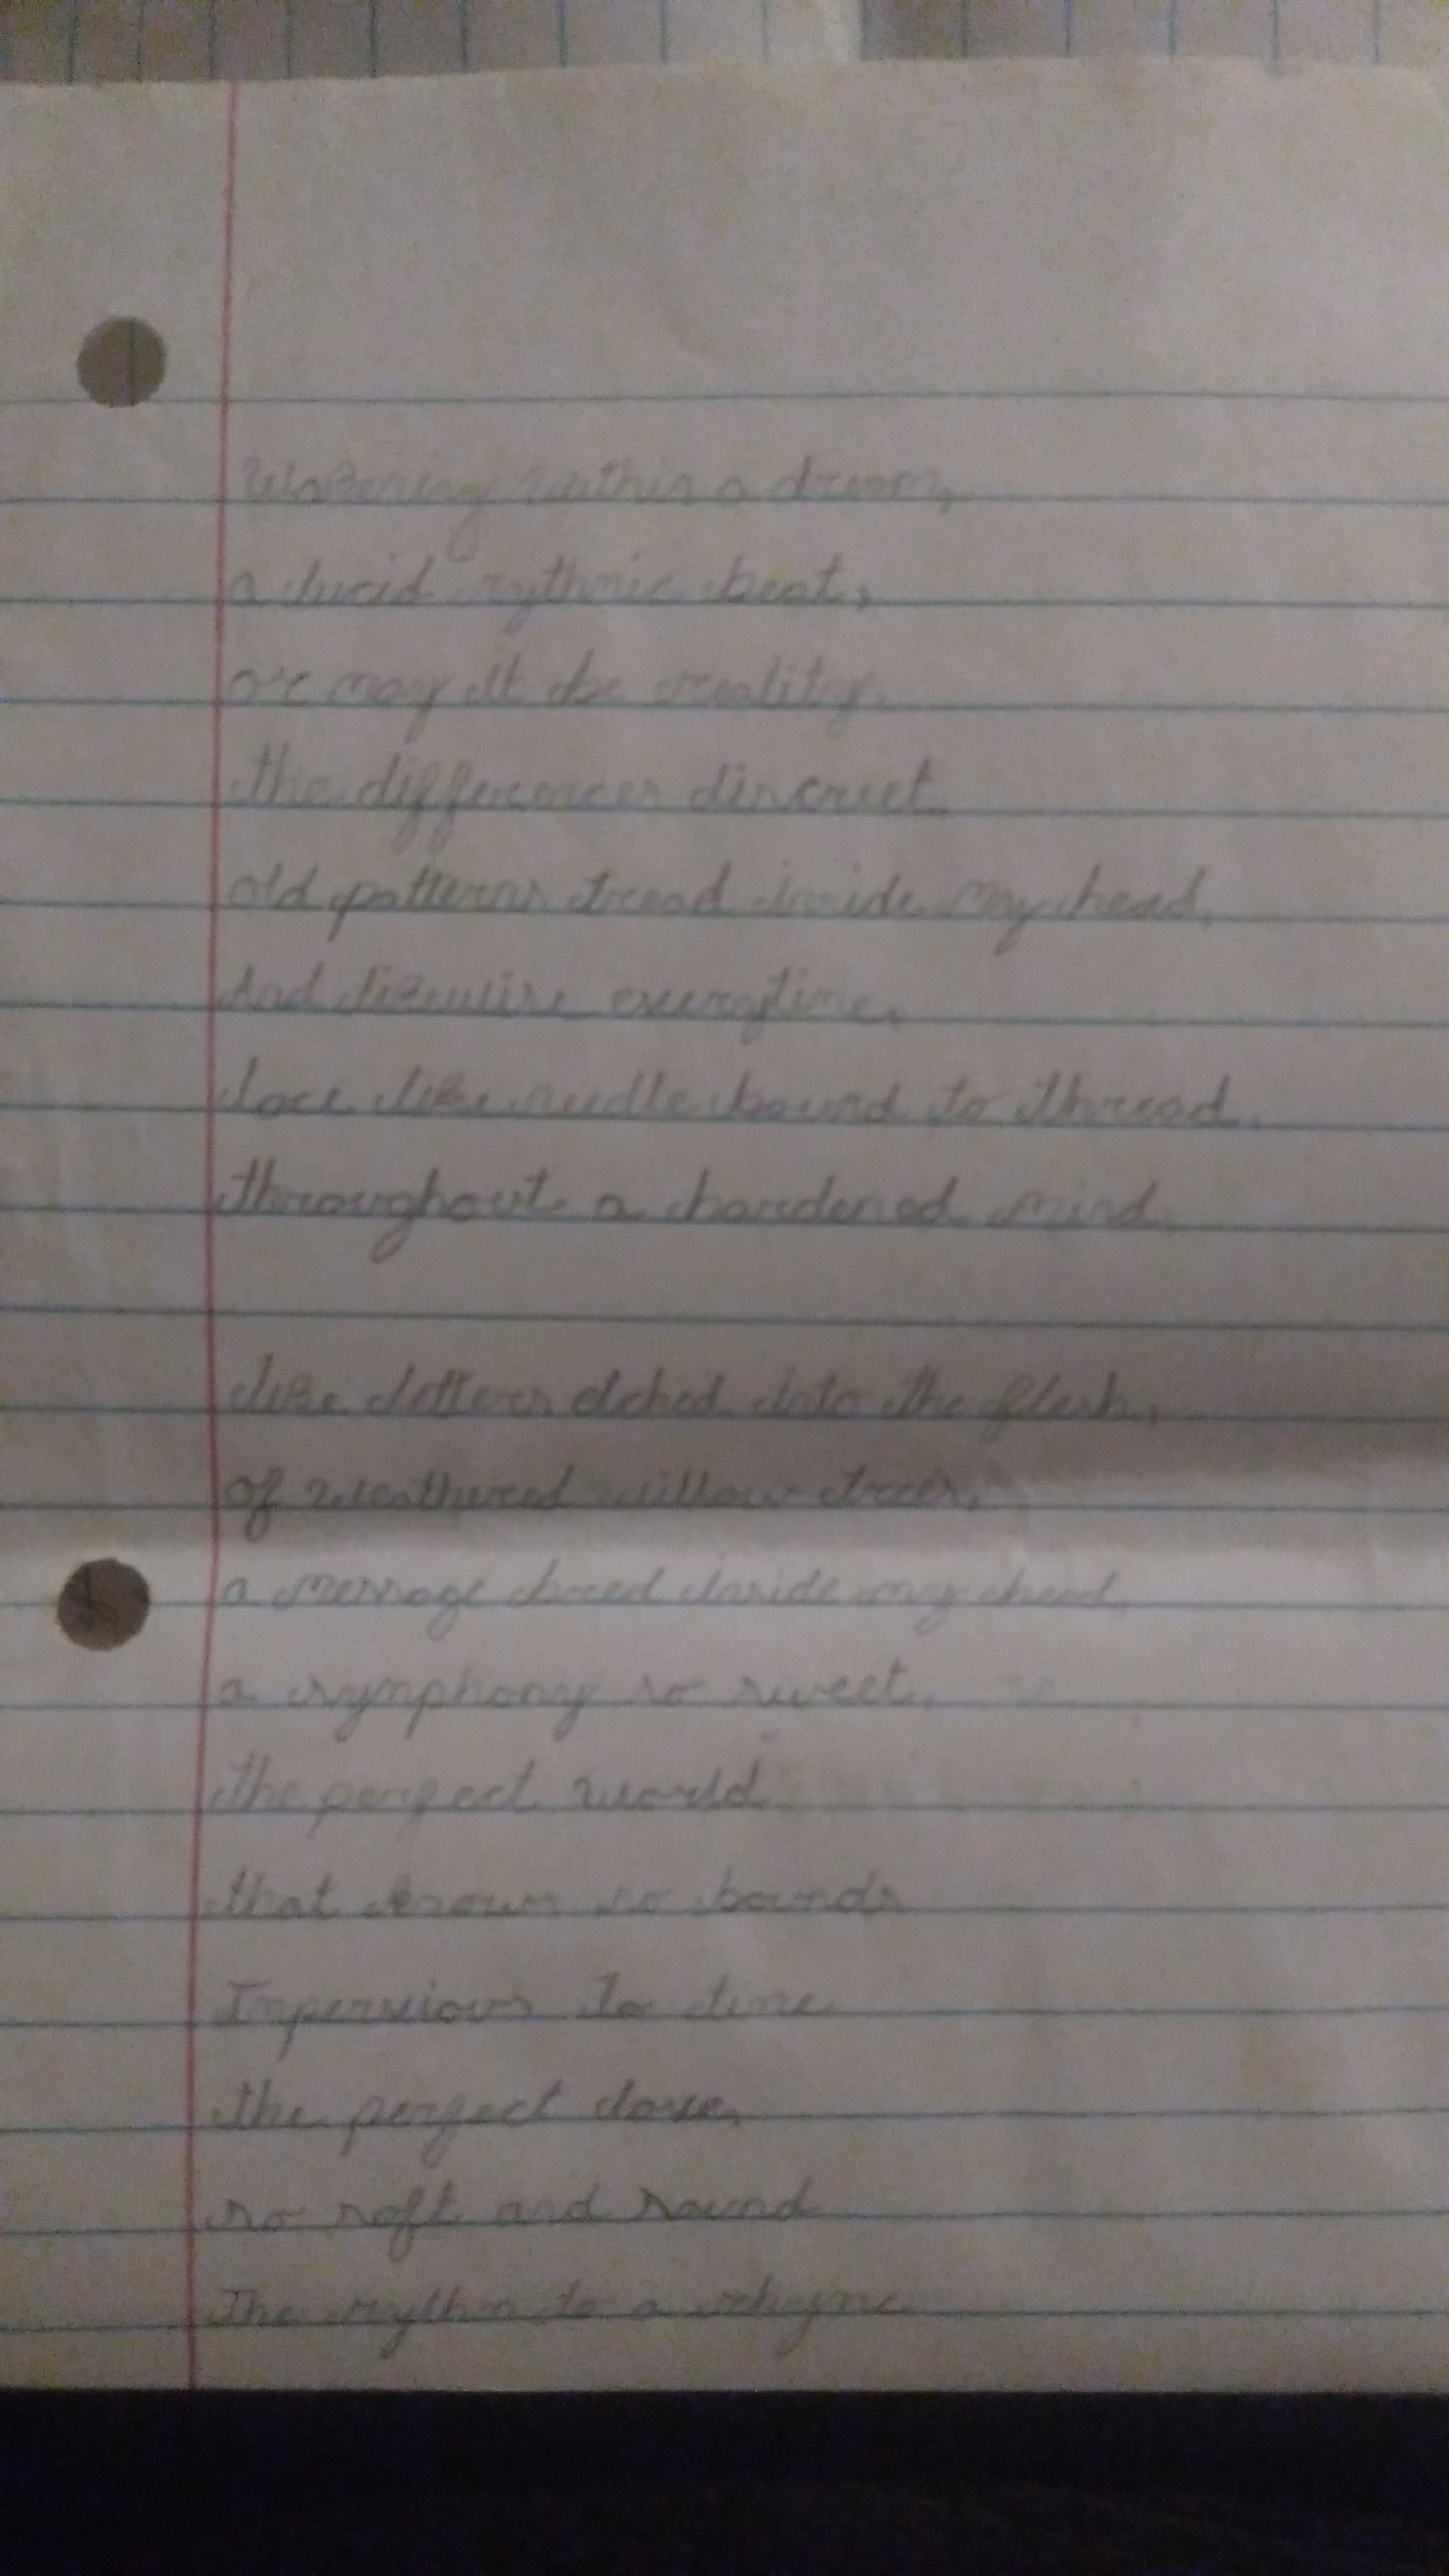 Wakening within a dream,
a lucid rythmic beat,
or may it be reality.
the differences discreet
old patterns tread inside my head,
And likewise everytime,
lace like needle bound to thread
throughout a hardened mind.
like letters etched into the flesh,
of weathered willow trees,
a message bred inside my head,
a symphony so sweet.
the perfect world
that knows no bounds
Impervious To time
the perfect dose,
so soft and sound
The rythm to a rhyme